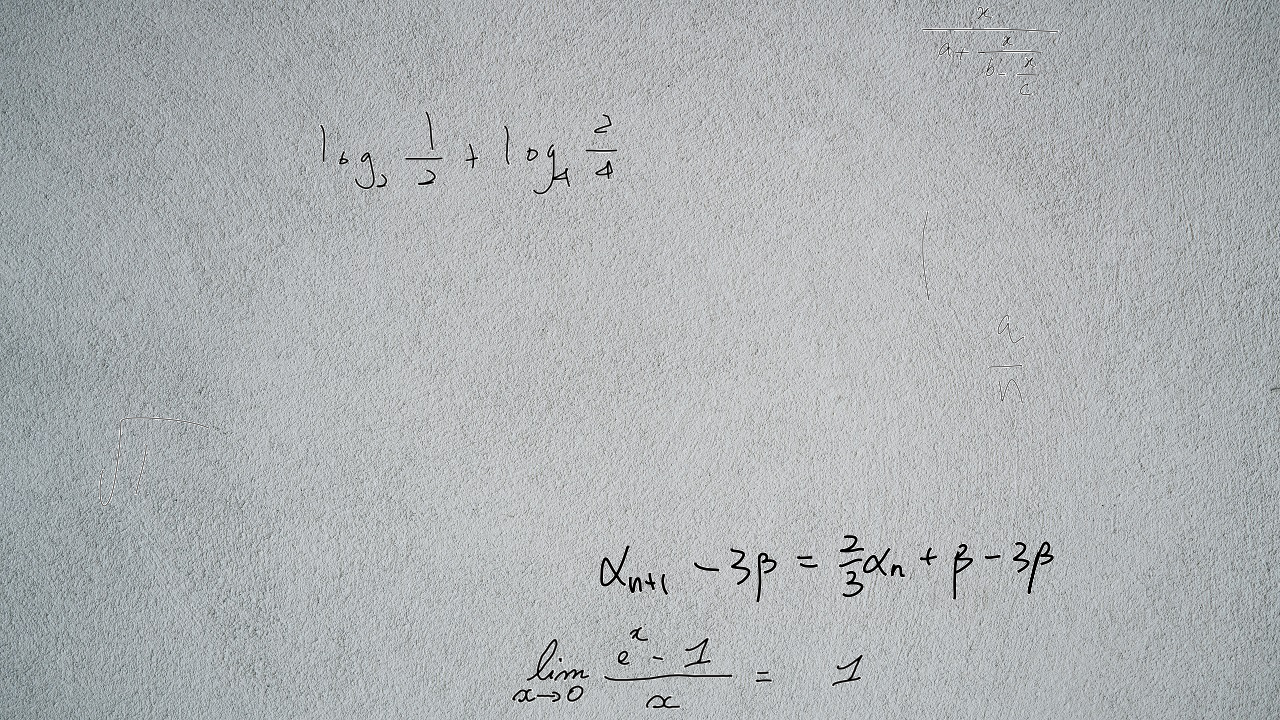 \frac{x}{a+\frac{x}{b-\frac{x}{c}}}
\log_2 \frac{1}{2} + \log_4 \frac{2}{4}
\frac{a}{n}
\alpha_{n+1} - 3\beta = \frac{2}{3}\alpha_n + \beta - 3\beta
\lim_{x \to 0} \frac{e^x - 1}{x} = 1